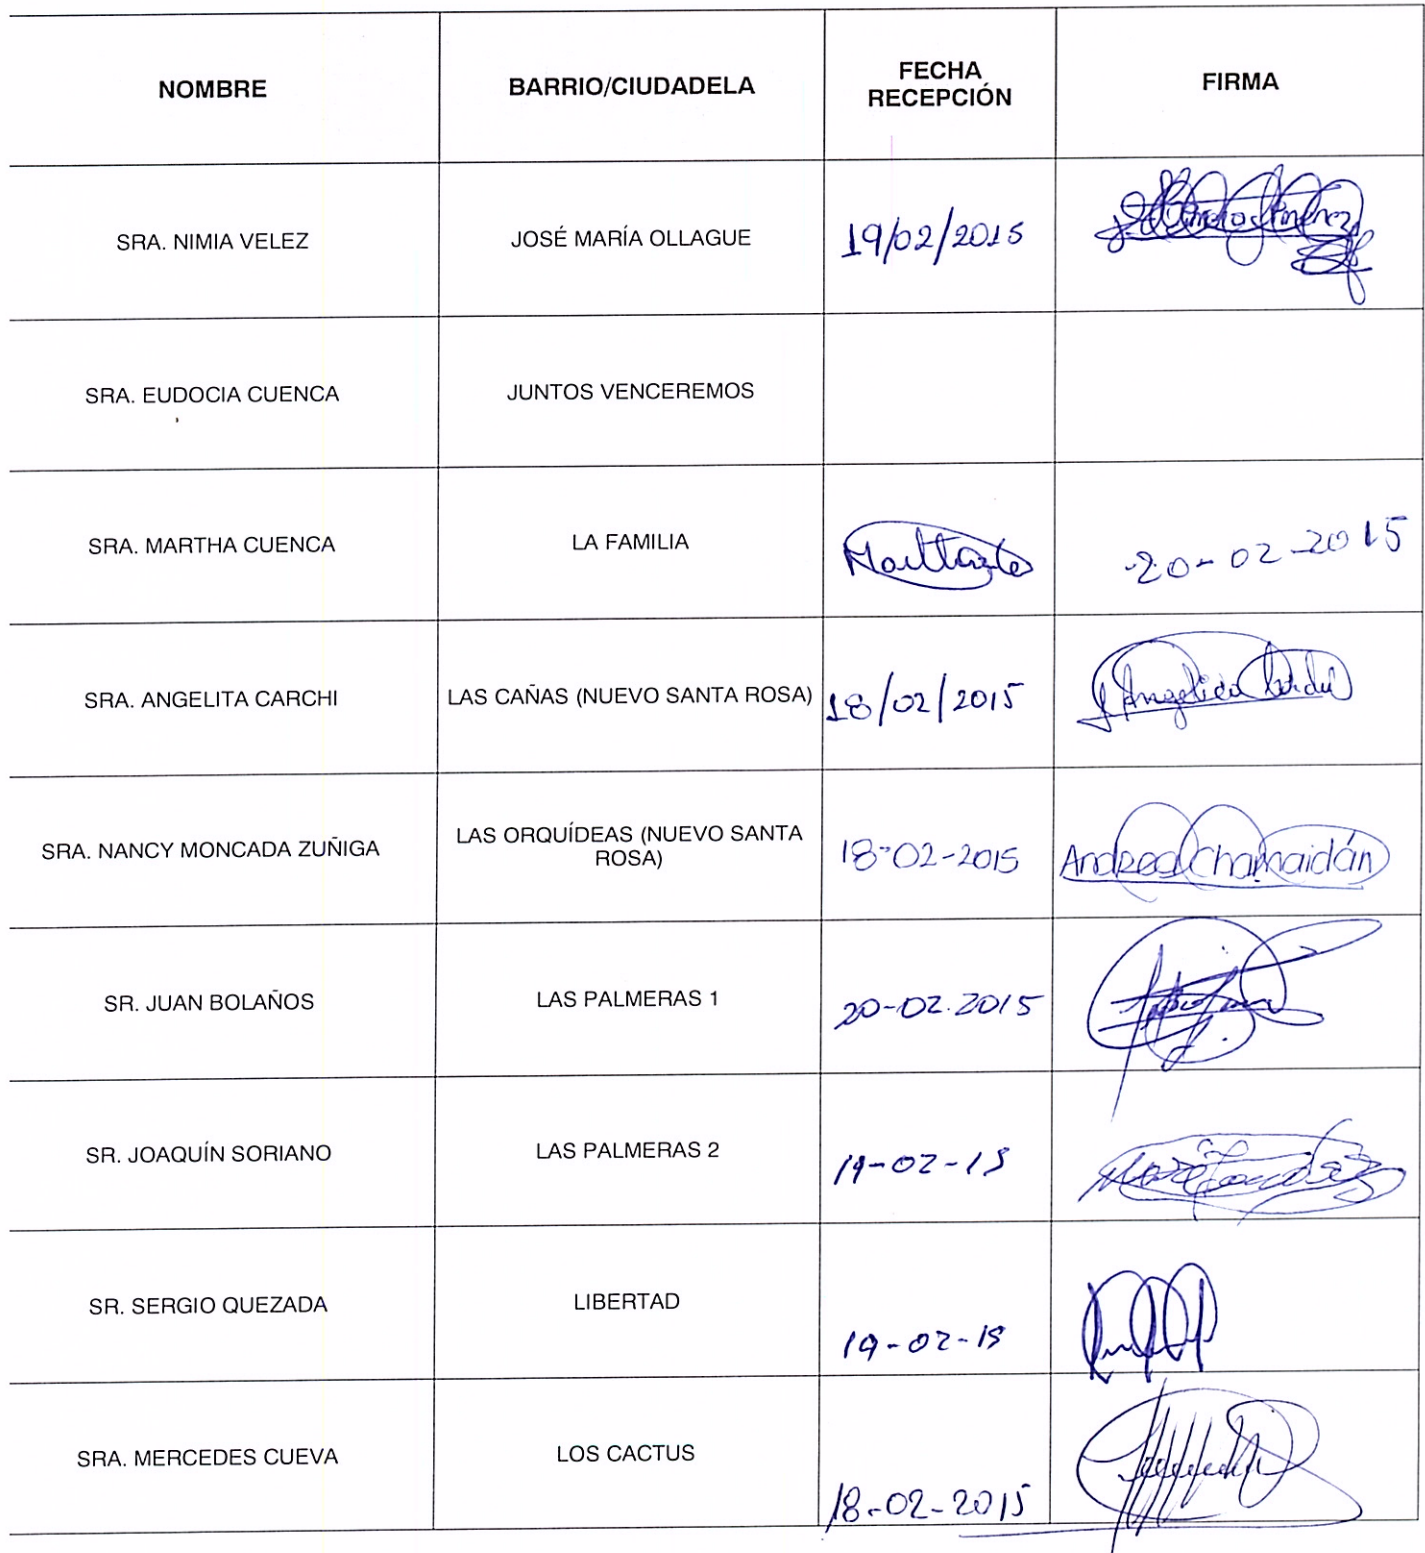 NOMBRE
BARRIO/CIUDADELA
FECHA
RECEPCIÓN
FIRMA
SRA. NIMIA VELEZ
JOSÉ MARÍA OLLAGUE
19/02/2015
SRA. EUDOCIA CUENCA
JUNTOS VENCEREMOS
SRA. MARTHA CUENCA
LA FAMILIA
20-02-2015
SRA. ANGELITA CARCHI
LAS CAÑAS (NUEVO SANTA ROSA)
18/02/2015
Angelica
SRA. NANCY MONCADA ZUÑIGA
LAS ORQUÍDEAS (NUEVO SANTA
ROSA)
18-02-2015
Andrea Chamaidán
SR. JUAN BOLAÑOS
LAS PALMERAS 1
20-02.2015
SR. JOAQUÍN SORIANO
LAS PALMERAS 2
19-02-15
SR. SERGIO QUEZADA
LIBERTAD
19-02-15
SRA. MERCEDES CUEVA
LOS CACTUS
18-02-2015